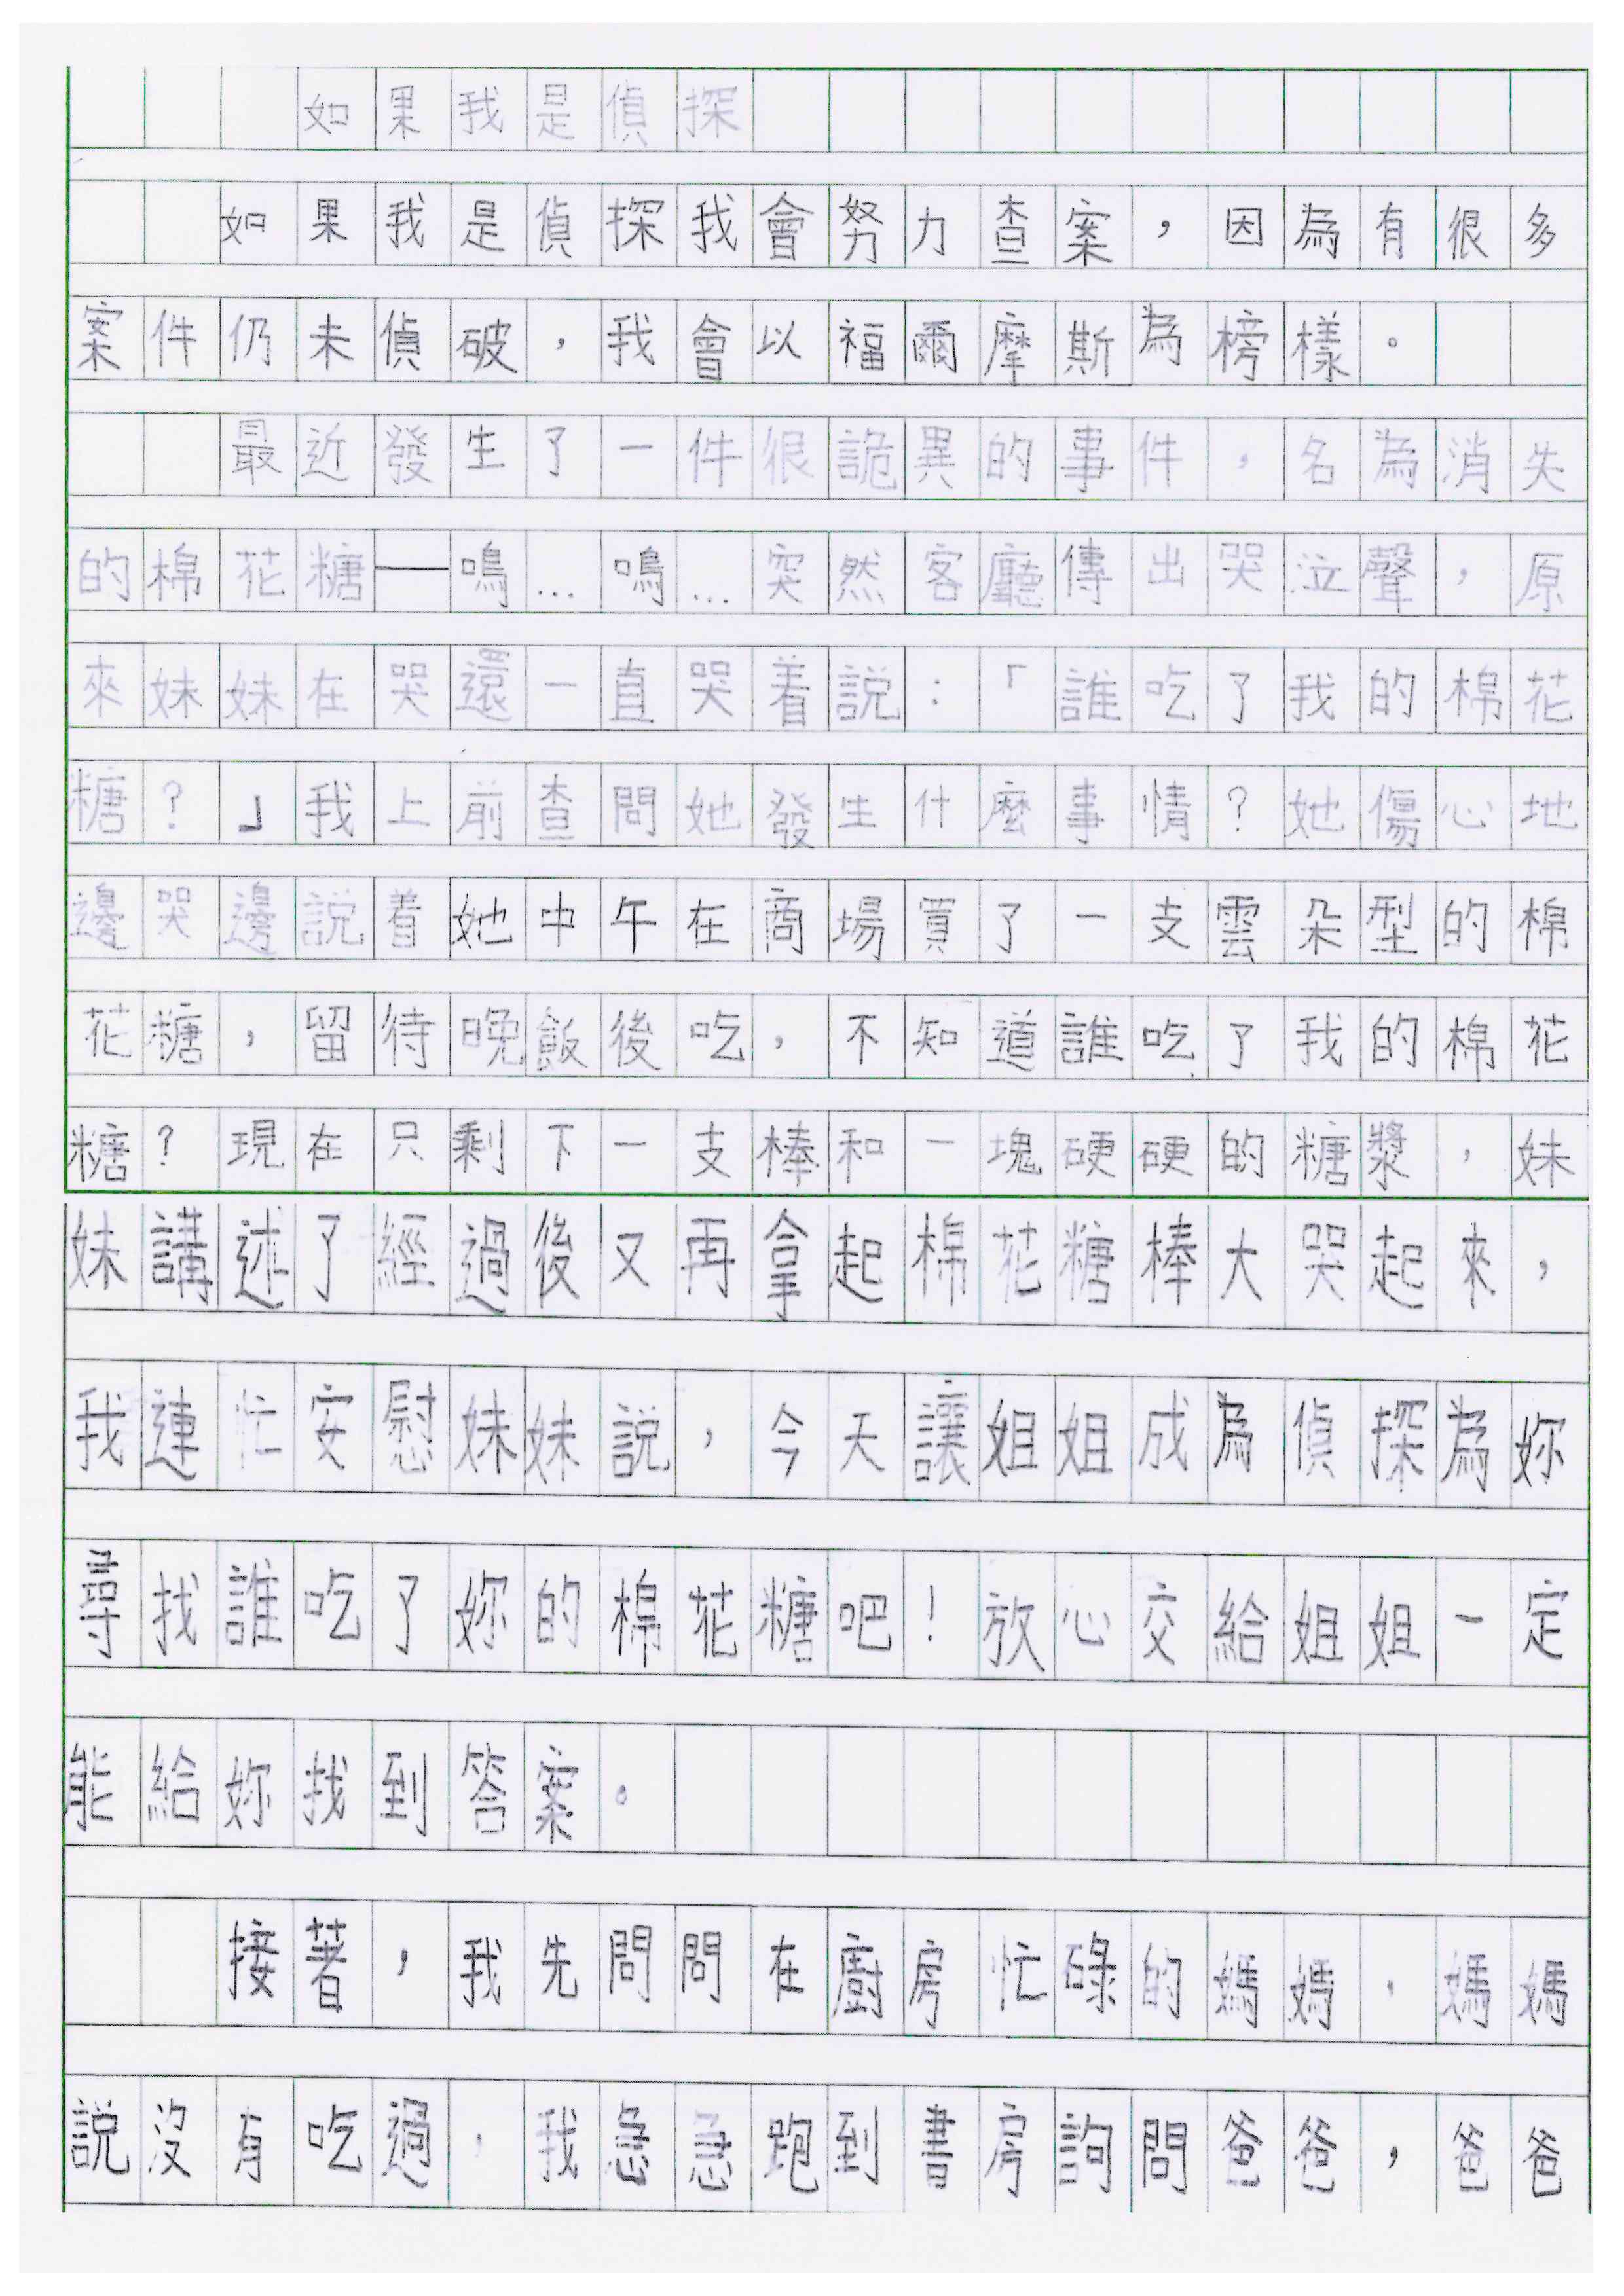 如果我是偵探
如果我是偵探我會努力查案，因為有很多
案件仍未偵破，我會以福爾摩斯為榜樣。
最近發生了一件很詭異的事件，名為消失
的棉花糖——鳴…鳴…突然客廳傳出哭泣聲，原
來妹妹在哭還一直哭着説：「誰吃了我的棉花
糖？」我上前查問她發生什麼事情？她傷心地
邊哭邊説着她中午在商場買了一支雲朵型的棉
花糖，留待晚飯後吃，不知道誰吃了我的棉花
糖？現在只剩下一支棒和一塊硬硬的糖漿，妹
妹講述了經過後又再拿起棉花糖棒大哭起來，
我連忙安慰妹妹説，今天讓姐姐成為偵探為妳
尋找誰吃了妳的棉花糖吧！放心交給姐姐一定
能給妳找到答案。
接著，我先問問在廚房忙碌的媽媽，媽媽
説沒有吃過，我急急跑到書房詢問爸爸，爸爸